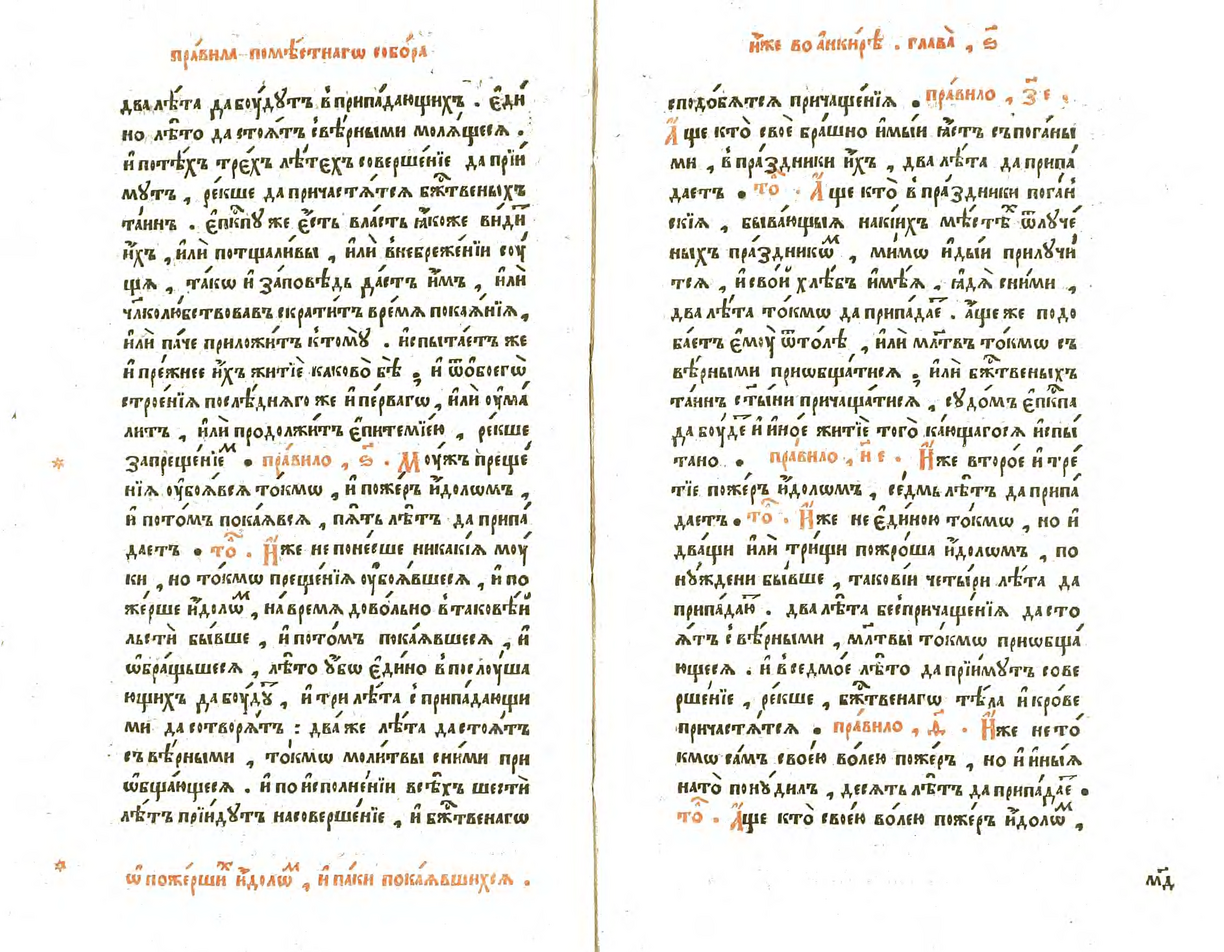 пра́вила помѣ́стнагѡ собо́ра
два лѣ́та да бꙋ́дꙋтъ в припа́дающихъ . є҆ди́
но лѣ́то да стоѧ́тъ с вѣ́рными молѧ́щесѧ .
и҆ по тѣ́хъ тре́хъ лѣ́тѣхъ соверше́нїе да прїи́
мꙋтъ , ре́кше да причастѧ́тсѧ бж҃твеныхъ
та́инъ . є҆пкпꙋ же є҆́сть власть ꙗ҆́коже ви́ди
и҆̀хъ , и҆лѝ потщали́вы , и҆лѝ в небреже́нїи сꙋ́
щѧ , та́кѡ и҆ за́повѣдь дае́тъ и҆̀мъ , и҆лѝ
чл҃колю́бствовавъ скрати́тъ вре́мѧ покаѧ́нїѧ ,
и҆лѝ па́че приложи́тъ к томꙋ̀ . и҆спыта́етъ же
и҆ пре́жнее и҆́хъ житїѐ каково̀ бѣ̀ ; и҆ ѿ обоегѡ̀
строе́нїѧ послѣ́днѧго же и҆ пе́рвагѡ , и҆лѝ оу҆ма
ли́тъ , и҆лѝ продолжи́тъ є҆питемїе́ю , ре́кше
запреще́нїеⷨ . пра́вило , ѕ҃ . Мꙋ́жъ преще́
нїѧ оу҆боѧ́всѧ то́кмѡ , и҆ поже́ръ и҆́долѡмъ ,
и҆ пото́мъ покаѧ́всѧ , пѧ́ть лѣ́тъ да припа́
даетъ . то̑ . И҆̀же не поне́сше никакі́ѧ мꙋ́
ки , но то́кмѡ преще́нїѧ оу҆боѧ́вшесѧ , и҆ по
же́рше и҆́долѡⷨ , на вре́мѧ дово́льно в таковѣ́и
льстѝ бы́вше , и҆ пото́мъ покаѧ́вшесѧ , и҆
ѡ҆бра́щьшесѧ , лѣ́то ᲂу҆́бѡ є҆ди́но в послꙋ́ша
ющихъ да бꙋ́дꙋ̑ , и҆ три лѣ́та с припа́дающи
ми да сотворѧ́тъ : два́ же лѣ́та да стоѧ́тъ
съ вѣ́рными , то́кмѡ моли́твы с ни́ми при
ѡ҆бща́ющесѧ . и҆ по и҆сполне́нїи всѣ́хъ шестѝ
лѣ́тъ прїи́дꙋтъ на соверше́нїе , и҆ бж҃твенагѡ
ѡ҆ поже́ршиⷯ и҆́долѡⷨ , и҆ па́ки покаѧ́вшихсѧ .
и҆́же во а҆нки́рѣ . глава̀ , ѕ҃
сподо́бѧтсѧ причаще́нїѧ . пра́вило , з҃ е ,
А҆́ще кто̀ своѐ бра́шно и҆мы́и ꙗ҆́стъ съ пога́ны
ми , в пра́здники и҆́хъ , два лѣ́та да припа́
даетъ . то̑ . А҆́ще кто̀ в пра́здники пога́н
скїѧ , быва́ющыѧ на ки́ихъ мѣ́стѣⷯ ѿлꙋче́
ныхъ пра́здникѡⷨ , ми́мѡ и҆ды́и прилꙋчи́
тсѧ , и҆ сво́и хлѣ́бъ и҆мѣ́ѧ , ꙗ҆ды̀ с ни́ми ,
два лѣ́та то́кмѡ да припа́дае̑ . а҆́ще же подо
ба́етъ є҆мꙋ̀ ѿто́лѣ , и҆лѝ мл҃твъ то́кмѡ съ
вѣ́рными приѡбща́тисѧ ; и҆лѝ бж҃твеныхъ
та́инъ с ты́ми причаща́тисѧ , сꙋдо́мъ є҆пкпа
да бꙋ́де̑ и҆ и҆но́е житїѐ того̀ ка́ющагосѧ и҆спы́
тано . пра́вило , и҃ е . И҆́же второ́е и҆ тре́
тїе поже́ръ и҆́долѡмъ , се́дмь лѣ́тъ да припа́
даетъ . то̑ . И҆́же не є҆ди́ною то́кмѡ , но и҆
два́щи и҆лѝ три́щи пожро́ша и҆́долѡмъ , по
нꙋ́ждени бы́вше , такові́и четы́ри лѣ́та да
припа́даю̑ . два лѣ́та бес причаще́нїѧ да сто
ѧ́тъ с вѣ́рными , мл҃твы то́кмѡ приѡбща́
ющесѧ . и҆ в седмо́е лѣ́то да прїи́мꙋтъ сове
рше́нїе , ре́кше , бж҃твенагѡ тѣ́ла и҆ кро́ве
причастѧ́тсѧ . пра́вило , д҃ . И҆́же не то́
кмѡ са́мъ свое́ю во́лею поже́ръ , но и҆ и҆ны́ѧ
на то̀ понꙋ́дилъ , де́сѧть лѣ́тъ да припа́дае̑ .
то̑ . А҆́ще кто̀ свое́ю во́лею поже́ръ и҆́долѡⷨ ,
м҃д